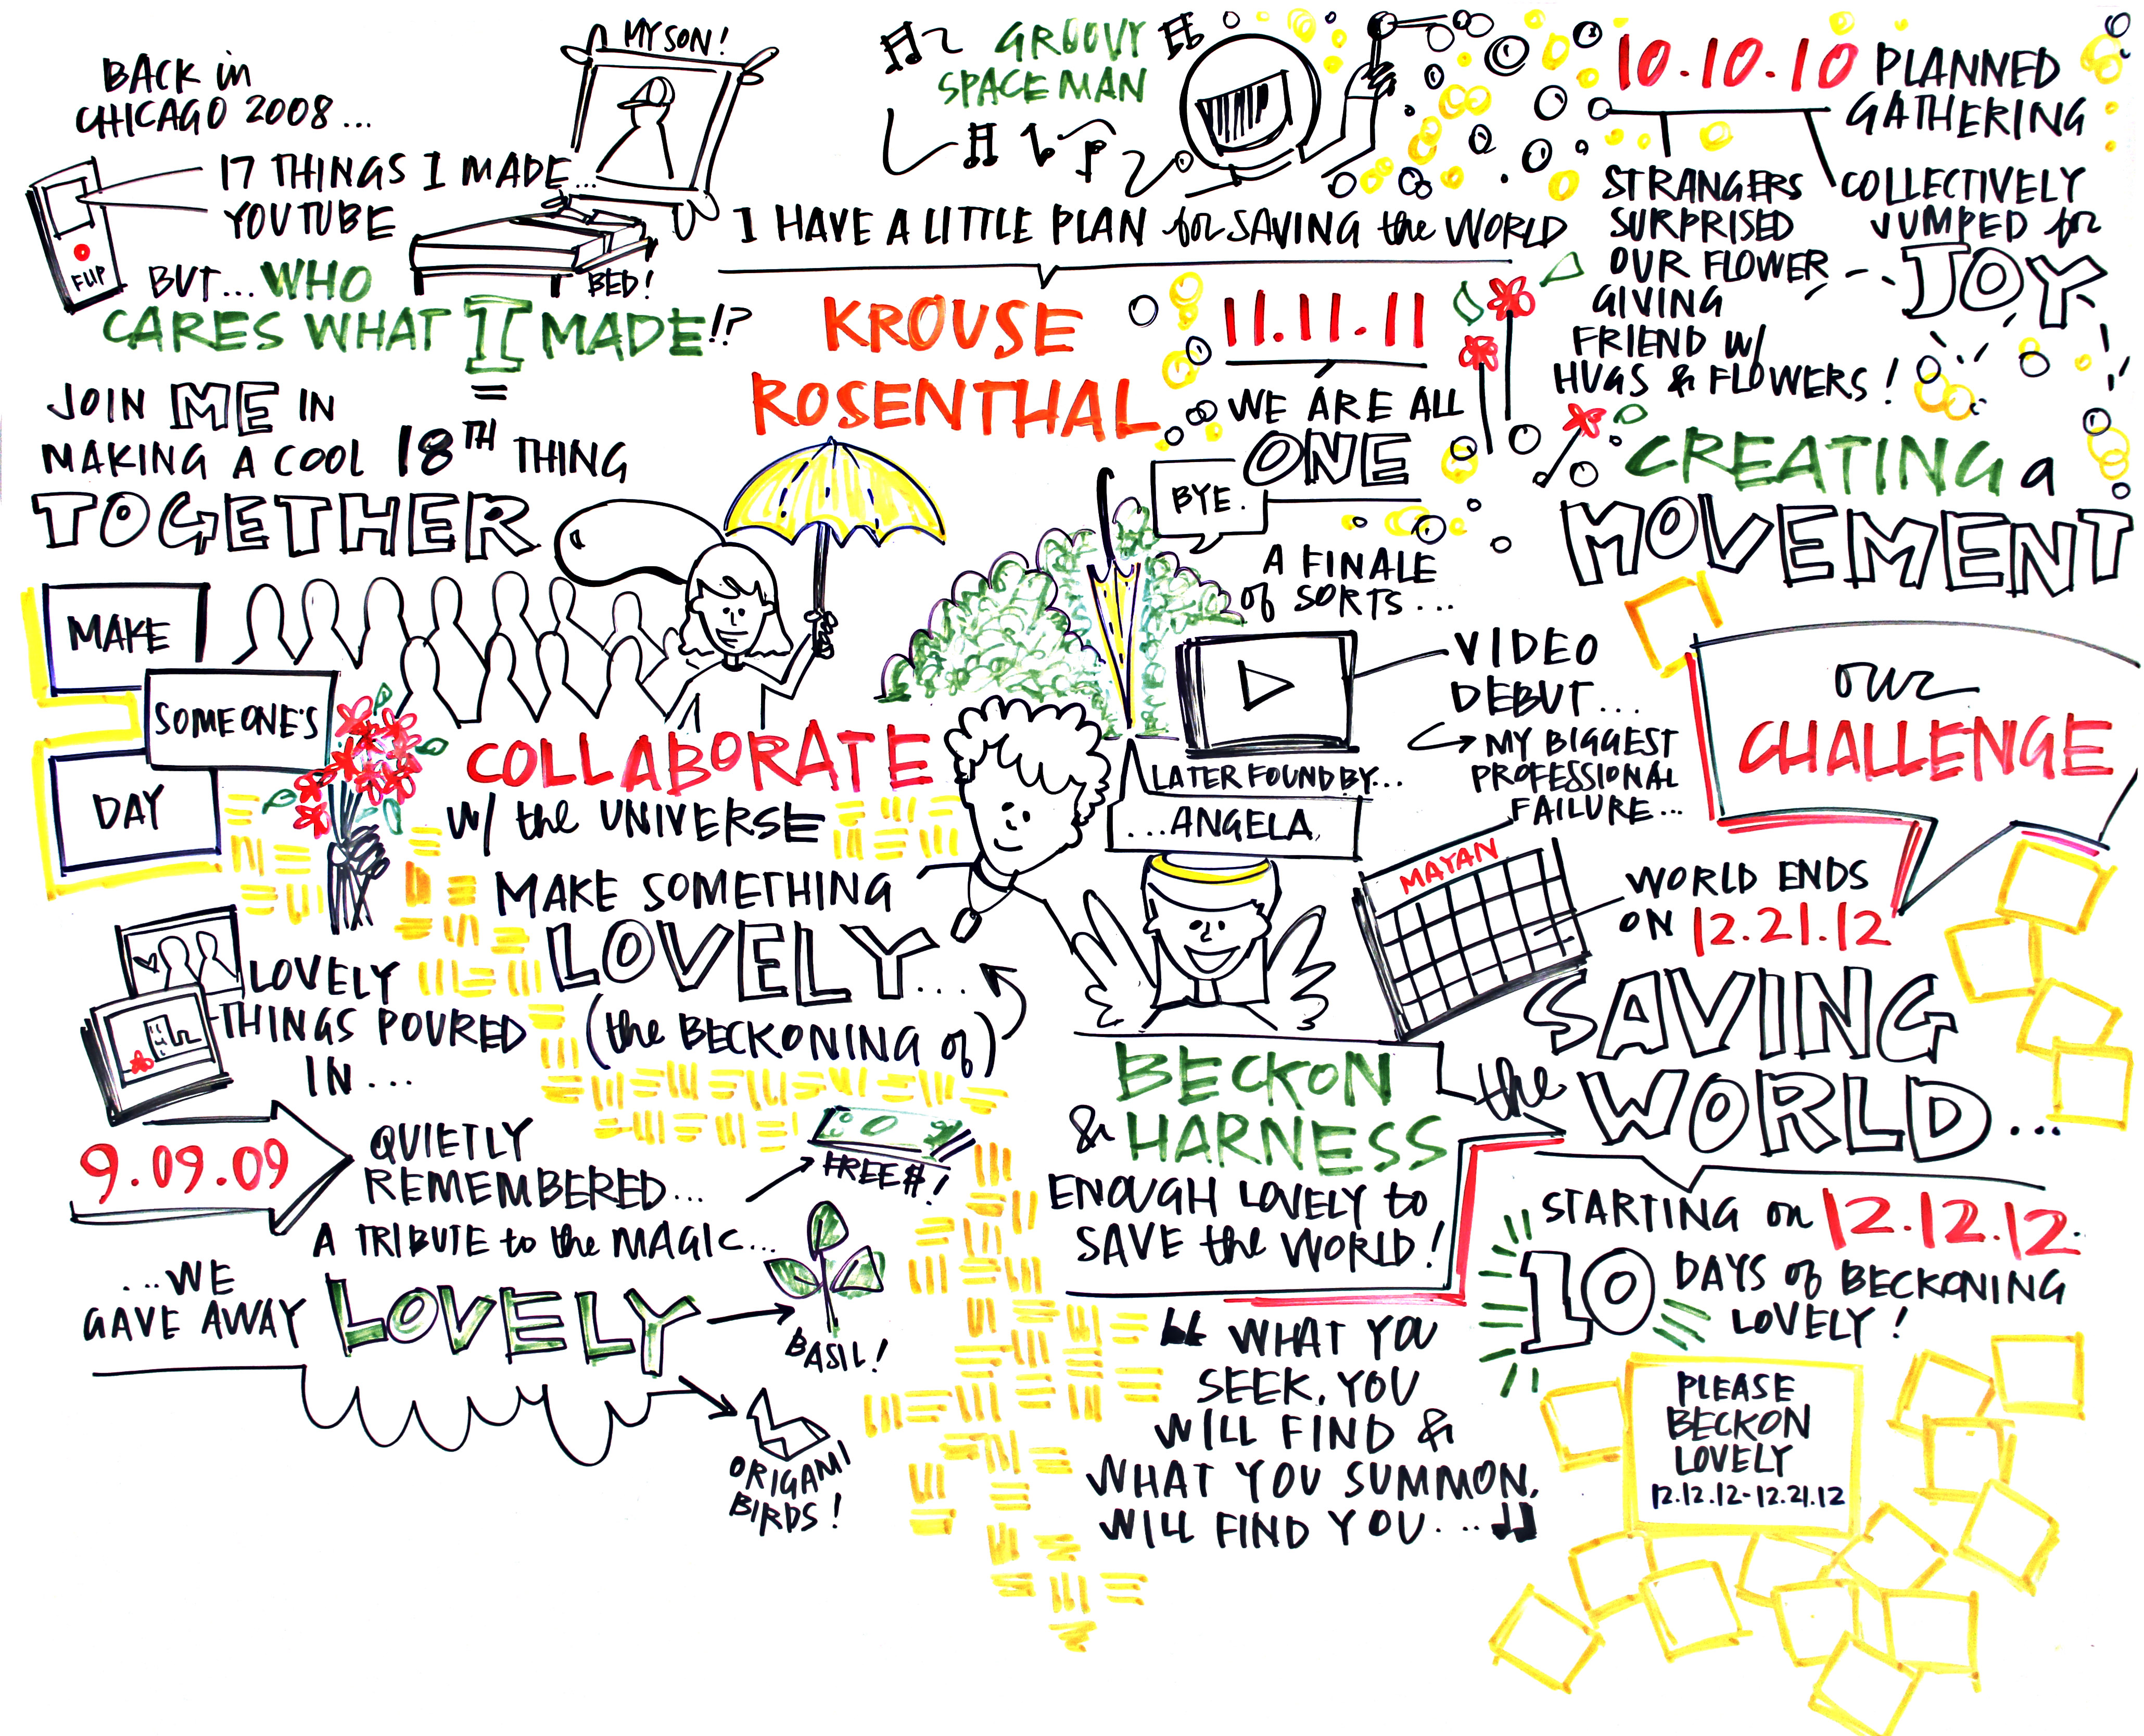 BACK in
CHICAGO 2008...
17 THINGS I MADE...
YOUTUBE
FLIP
MY SON!
BED!
BUT... WHO
CARES WHAT I MADE!?
JOIN ME IN
MAKING A COOL 18TH THING
TOGETHER
MAKE
SOMEONE'S
DAY
COLLABORATE
w/ the UNIVERSE
MAKE SOMETHING
LOVELY....
(the BECKONING of)
LOVELY
THINGS POURED
IN...
9.09.09
QUIETLY
REMEMBERED...
A TRIBUTE to the MAGIC...
...WE
GAVE AWAY LOVELY
FREE $!
BASIL!
ORIGAMI
BIRDS!
GROOVY
SPACE MAN
I HAVE A LITTLE PLAN for SAVING the WORLD
KROUSE
ROSENTHAL
10.10.10 PLANNED
GATHERING
STRANGERS
SURPRISED
OUR FLOWER
GIVING
FRIEND w/
HUGS & FLOWERS!
COLLECTIVELY
JUMPED for
JOY
11.11.11
WE ARE ALL
ONE
BYE.
A FINALE
of SORTS...
CREATING a
MOVEMENT
VIDEO
DEBUT...
MY BIGGEST
PROFESSIONAL
FAILURE...
LATER FOUND BY...
...ANGELA
OUR
CHALLENGE
MAYAN
WORLD ENDS
ON 12.21.12
SAVING
the WORLD...
BECKON
& HARNESS
ENOUGH LOVELY to
SAVE the WORLD!
"WHAT YOU
SEEK, YOU
WILL FIND &
WHAT YOU SUMMON,
WILL FIND YOU..."
STARTING on 12.12.12.
10 DAYS of BECKONING
LOVELY!
PLEASE
BECKON
LOVELY
12.12.12-12.21.12